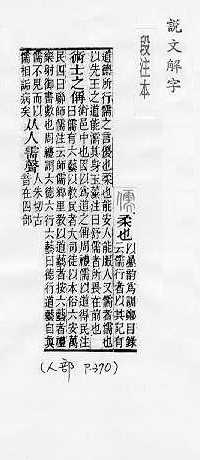 說文解字
段注本
儒 柔也 以疊韵爲訓鄭目錄
云儒行者以其記有
道德所行儒之言優也柔也能安人能服人又儒者濡也
以先王之道能濡其身玉藻注曰舒儒者所畏在前也
術士之偁 術邑中也因以爲道之偁周禮儒以道得民注
曰儒有六藝以敎民者大司徒以本俗六安萬
民四曰聯師儒注云師儒鄉里敎以道藝者按六藝者禮
樂射御書數也周禮謂六德六行六藝曰德行道藝自眞
儒不見而以儒
相詬病矣 从人需聲 人朱切古
音在四部
(人部 P370)